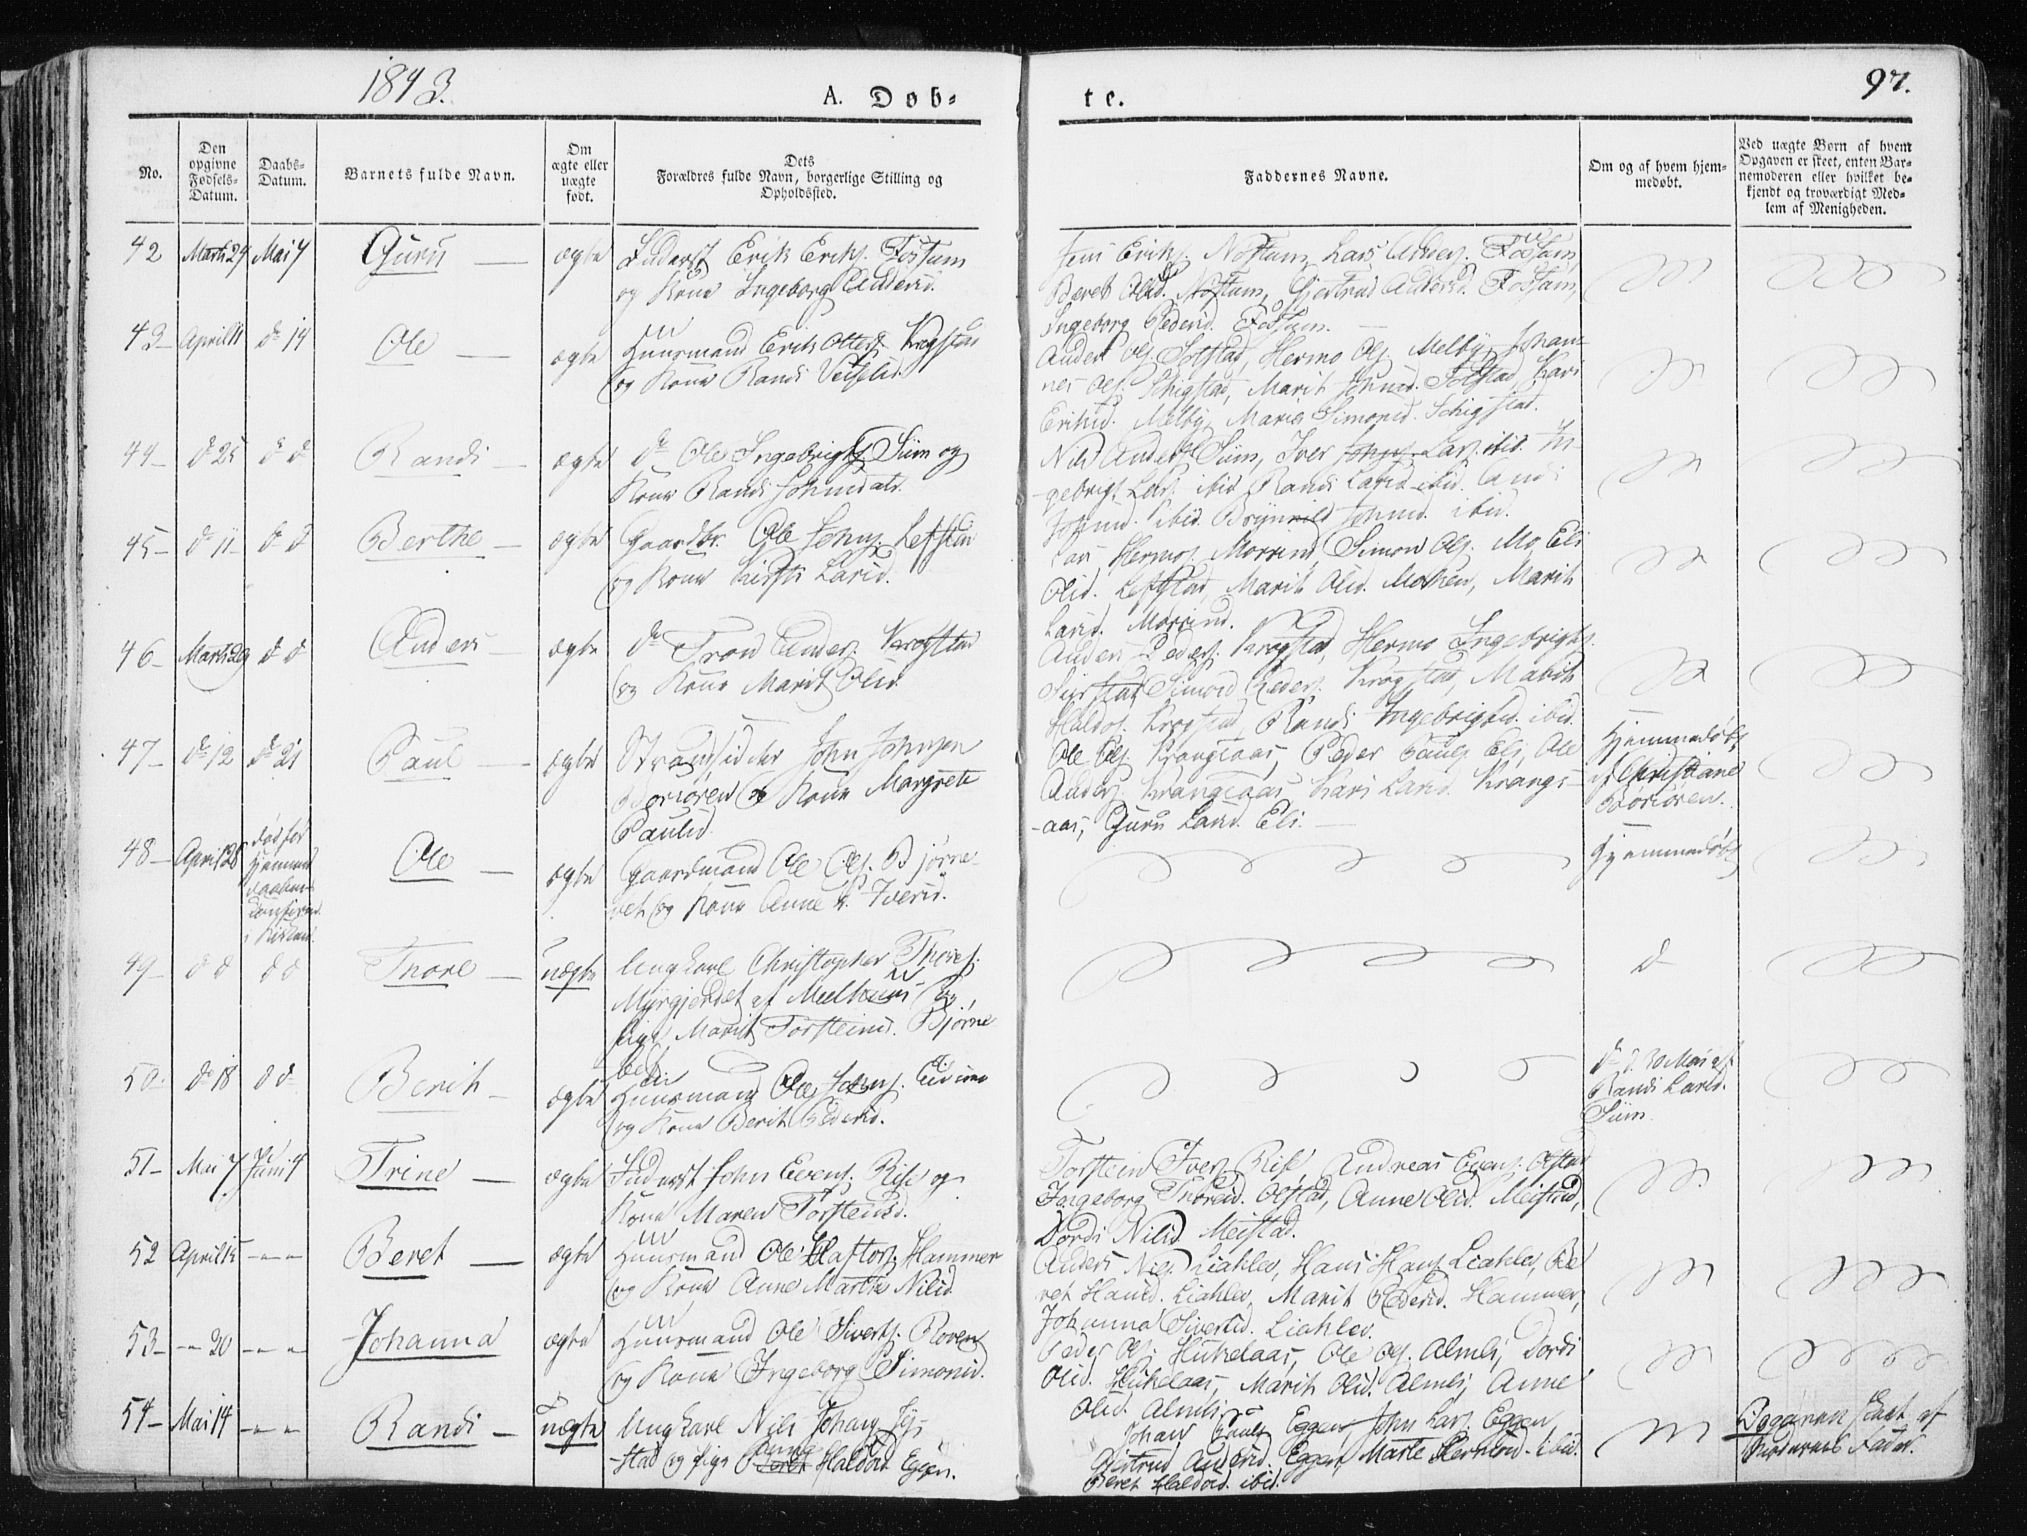 1843.
A. Døb=
te.
97.
No.
Den
opgivne
Fødsels=
Datum.
Daabs=
Datum.
Barnets fulde Navn.
Om
ægte eller
uægte
født.
Dets
Forældres fulde Navn, borgerlige Stilling og
Opholdssted.
Faddernes Navne.
Om og af hvem hjem=
medøbt.
Ved uægte Børn af hvem
Opgaven er skeet, enten Bar=
nemoderen eller hvilket be=
kjendt og troværdigt Med=
lem af Menigheden.
42 Marts 29 Mai 7 Guru ægte Inderst Erik Eriks. Fossum
og Kone Ingeborg Andersd.
Jens Eriks. Nostum, Lars Anders. Fossum,
Beret Olsd. Nostum, Gjertrud Andersd. Fossum,
Ingeborg Pedersd. Fossum.
43 April 11 do 14 Ole ægte Huusmand Erik Olss. Krogstad
og Kone Randi
Anders Ols. Solstad, Hermo Ols. Melby, Johan=
nes Ols. Schigstad, Marit Johnsd. Solstad, Kari
Eriksd. Melby, Marie Simonsd. Schigstad.
44 d 25 d d Randi ægte do Ole Ingebrigts. Siim og
Kone Randi Johnsdatr.
Nils Anders. Siim, Iver Lars. ibid. In=
gebrigt Lars. ibid. Randi Larsd. ibid.
Johnsd. ibid. Brynild Johnsd. ibid.
45 do 11 d d Berthe ægte Gaardbr. Ole Johns. Lefstad
og Kone Kirsti Larsd.
Lars Hermos. Morrind, Simon Ols. Mo, Eli
Olsd. Lefstad, Marit Olsd. Moen, Marit
Larsd. Morrind.
46 Marts 29 d d Anders ægte do Trond Anders. Krogstad
og Kone Marit Olsd.
Anders Peders. Krogstad, Hermo Ingebrigts.
Simon Peders. Krogstad, Marit
Haldos. Krogstad, Randi Ingebrigtsd. ibid.
47 do 12 do 21 Paul ægte Strandsidder John Johnsen
Børsøren og Kone Margrete
Paulsd.
Ole Ols. Krangsaas, Peder Pauls. Eli, Ole
Anders. Krangsaas, Kari Larsd. Krangs=
aas, Guru Larsd. Eli.
Hjemmedøbt
af Christiane
Børsøren.
48 April 28 død før Hjemmedaaben confirmed i Kirken Ole ægte Gaardmand Ole Ols. Bjørne=
bet og Kone Anne Iversd.
Hjemmedøbt
49 d d d d Thore uægte Ungkarl Christopher Thores.
Myrgjerdet af Meelhuus og
Pige Marit Torsteinsd. Bjørne
bet
d
50 do 18 d d Berit ægte Huusmand Ole Johns. Eidsmo
og Kone Berit Pedersd.
do d. 30 Mai af
Randi Larsd.
Siim.
51 Mai 7 Juni 4 Trine ægte Inderst John Evens. Rise og
Kone Maren Torsteinsd.
Torstein Ivers. Rise, Andreas Evens. Ølstad
Ingeborg Thoresd. Ølstad, Anne Olsd. Meistad,
Dordi Nilsd. Meistad.
52 April 15 Beret ægte Huusmand Ole Haftors. Hammer
og Kone Anne Marthe Nilsd.
Anders Niels. Liahlev, Hans Hans. Liahlev, Be
ret Hansd. Liahlev, Marit Pedersd. Hammer,
Johanna Sivertsd. Liahlev.
53 30 Johanna ægte Huusmand Ole Siverts. Roven
og Kone Ingeborg Simonsd.
Peder Ols. Hukelaas, Ole Ols. Almli, Dordi
Olsd. Hukelaas, Marit Olsd. Almli, Anne
Olsd. Almli.
54 Mai 14 Randi uægte Ungkarl Nils Johans. Sys=
stad og Pige Anne Haldosd. Eggen.
Johan Pauls. Eggen, John Lars. Eggen,
Gjertrud Andersd. Eggen, Marte Bersvensd. ibid.
Beret Haldosd. ibid.
Opgaven skeet af
Moderens Fader.